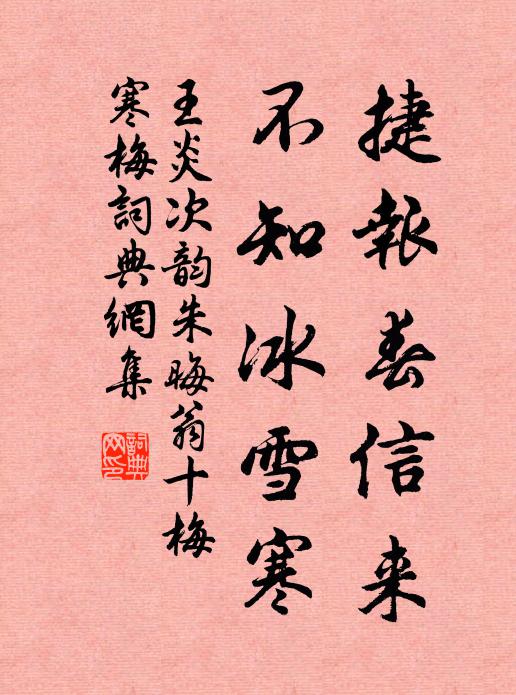 捷報春信来
不知冰雪寒
王炎次韵朱晦翁十梅
寒梅詞典網集
詞典
网印